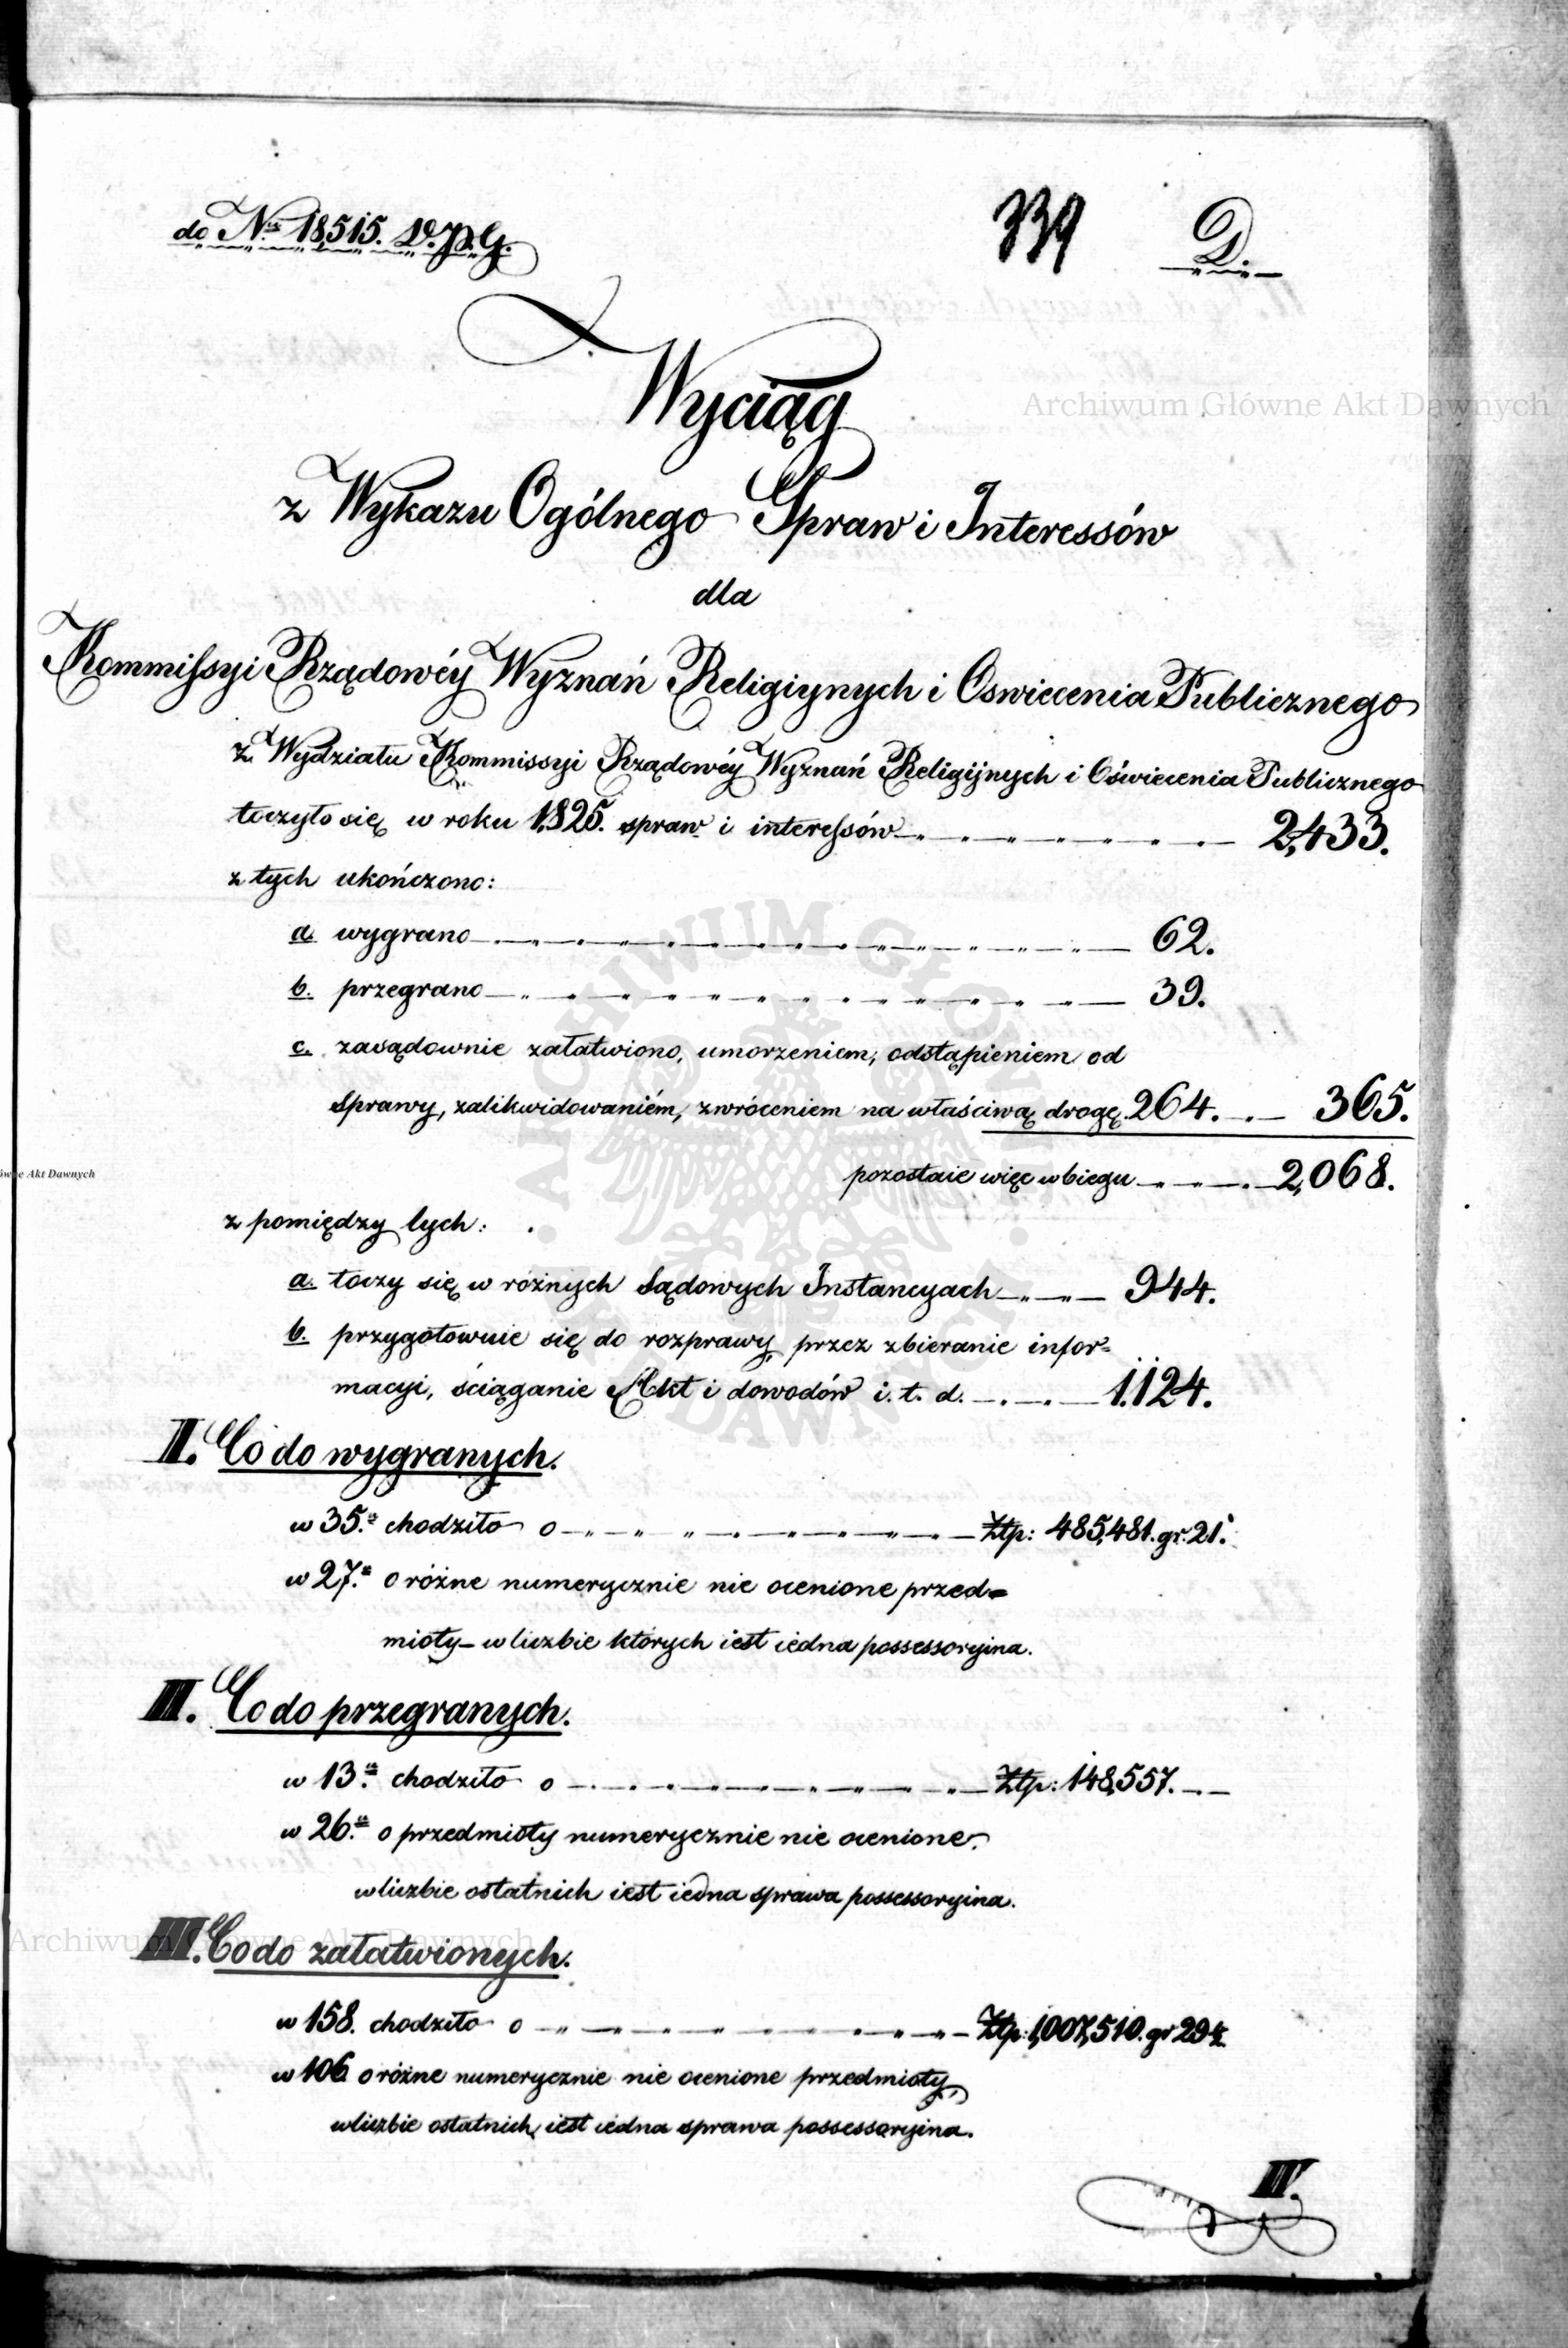 do Nru 18,515. D.P.G.
339
D.
Wyciąg
z Wykazu Ogólnego Spraw i Interessów
dla
Kommissyi Rządowéy Wyznań Religiynych i Oswiecenia Publicznego
z Wydziału Kommissyi Rządowéy Wyznań Religijnych i Oświecenia Publicznego
toczyło się w roku 1825. spraw i interessów 2,433.
z tych ukończono:
a. wygrano 62.
b. przegrano 39.
c. zasądownie załatwiono, umorzeniem, odstąpieniem od
sprawy, zalikwidowaniém, zwróceniem na właściwą drogę 264. 365.
pozostaie więc w biegu 2,068.
z pomiędzy tych:
a. toczy się w różnych Sądowych Instancyach 944.
b. przygotowuie się do rozprawy, przez zbieranie infor=
macyi, ściąganie Akt i dowodów i. t. d. 1.124.
II. Co do wygranych.
w 35. chodziło o Złp: 485,481. gr: 21.
w 27. o różne numerycznie nie ocenione przed=
mioty – w liczbie których iest iedna possessoryina.
III. Co do przegranych.
w 13. chodziło o Złp: 148,557.
w 26. o przedmioty numerycznie nie ocenione.
w liczbie ostatnich iest iedna sprawa possessoryina.
III. Co do załatwionych.
w 158. chodziło o Złp: 1,007,510. gr
w 106 o różne numerycznie nie ocenione przedmioty,
w liczbie ostatnich, iest iedna sprawa possessoryina.
IV.
Archiwum Główne Akt Dawnych
ARCHIWUM GŁÓWNE AKT DAWNYCH
ówne Akt Dawnych
Archiwum Główne Akt Dawnych